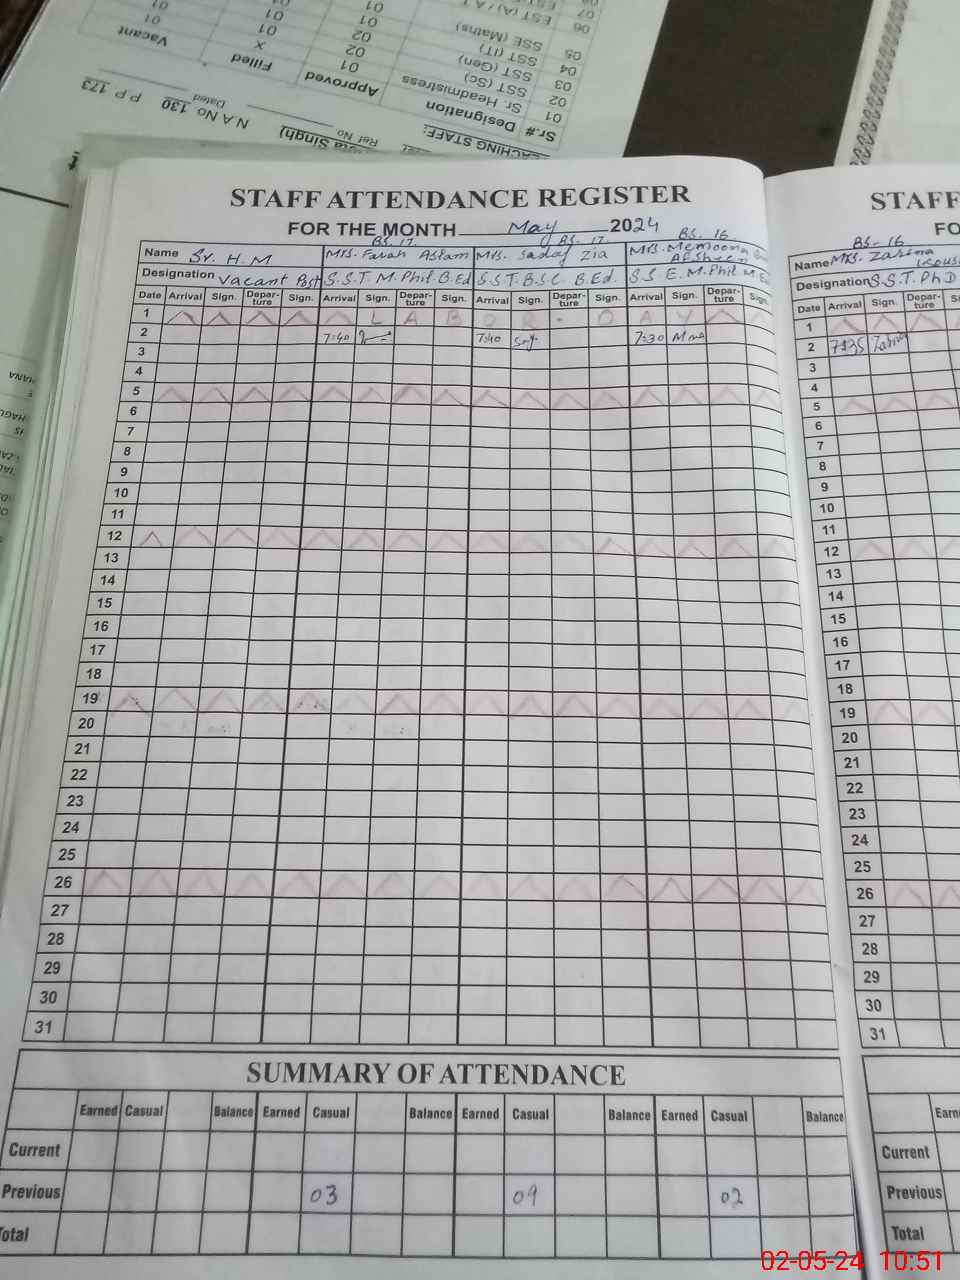 EACHING STAFF:
Sr.# Designation Approved Filled Vacant
01 Sr. Headmistress 01 X 01
02 SST (Sc) 02 01 01
03 SST (Gen) 02
04 SST (IT) 01
05 SSE (Maths)
06
07
Ref No
Dated
N A No. 130 P P 173
STAFF ATTENDANCE REGISTER
FOR THE MONTH May 2024
BS.17. BS.17. BS.16
Name Sr. H.M Mrs. Farah Aslam Mrs. Sadaf Zia Mrs. Memoona
Afsheen
Designation Vacant Post S.S.T. M.Phil. B.Ed S.S.T. B.S.C. B.Ed. S.S.E. M.Phil. M.E
Date Arrival Sign. Depar-ture Sign. Arrival Sign. Depar-ture Sign. Arrival Sign. Depar-ture Sign. Arrival Sign. Depar-ture Sign.
1 LABOR DAY
2 7:40 7:40 7:30
3
4
5
6
7
8
9
10
11
12
13
14
15
16
17
18
19
20
21
22
23
24
25
26
27
28
29
30
31
SUMMARY OF ATTENDANCE
Earned Casual Balance Earned Casual Balance Earned Casual Balance Earned Casual Balance
Current
Previous 03 09 02
Total
STAFF
FO
BS-16
Name Mrs. Zahina
Designation S.S.T. PhD
Date Arrival Sign. Depar-ture
1
2 7:35
3
4
5
6
7
8
9
10
11
12
13
14
15
16
17
18
19
20
21
22
23
24
25
26
27
28
29
30
31
Earn
Current
Previous
Total
02-05-24 10:51